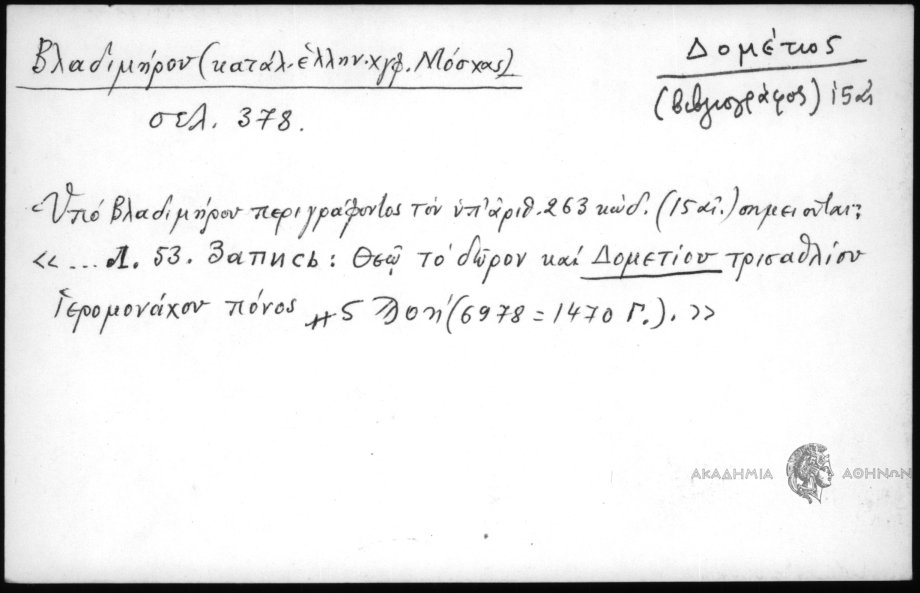 Βλαδιμήρου (κατάλ. ἑλλην. χγφ. Μόσχας)
σελ. 378.
Δομέτιος
(βιβλιογράφος) 15 αἰ
Ὑπό Βλαδιμήρου περιγράφοντος τόν ὑπ' ἀριθ. 263 κώδ. (15 αἰ.) σημειοῦται:
«... Л. 53. Запись: Θεῷ τό δῶρον καί Δομετίου τρισαθλίου
Ἱερομονάχου πόνος (6978 = 1470 Г.). »
ΑΚΑΔΗΜΙΑ ΑΘΗΝΩΝ